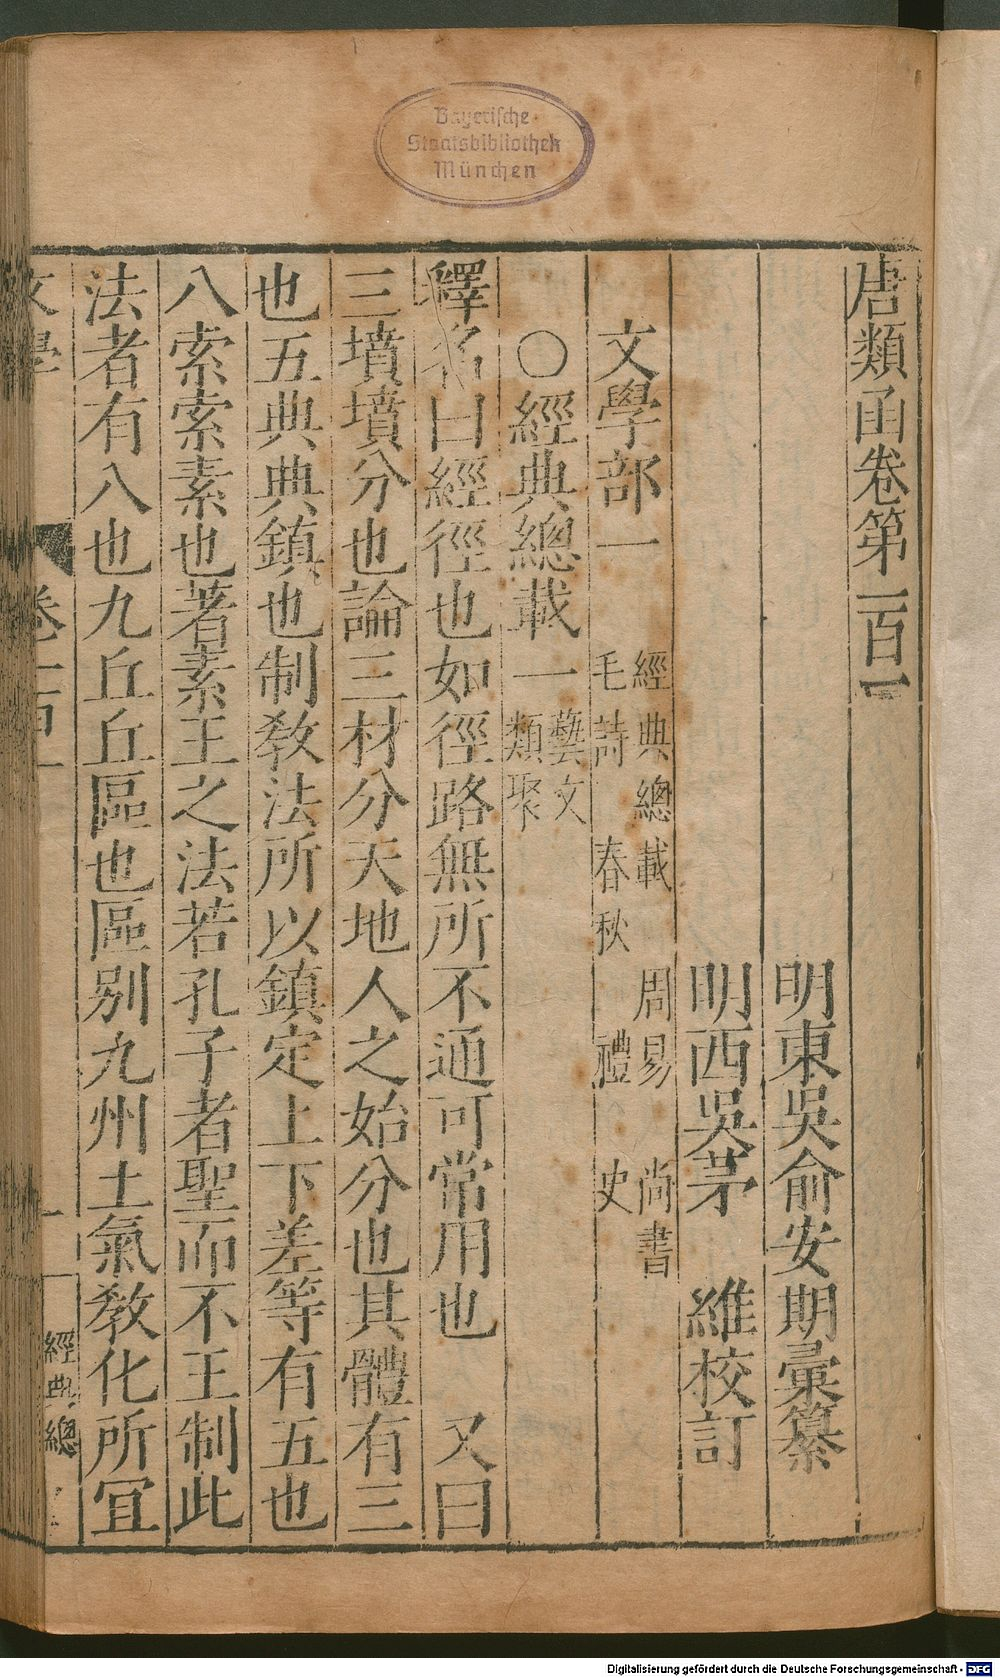 Bayerische
Staatsbibliothek
München
唐類函卷第一百一
明東吳俞安期彙纂
明西吳茅　維校訂
文學部一
經典總載　周易　尚書
毛詩　春秋　禮　史
○經典總載一
藝文
類聚
釋名曰經徑也如徑路無所不通可常用也　又曰
三墳墳分也論三材分天地人之始分也其體有三
也五典典鎮也制教法所以鎮定上下差等有五也
八索索素也著素王之法若孔子者聖而不王制此
法者有八也九丘丘區也區別九州土氣教化所宜
文學　卷一百一　一　經典總
Digitalisierung gefördert durch die Deutsche Forschungsgemeinschaft - DFG